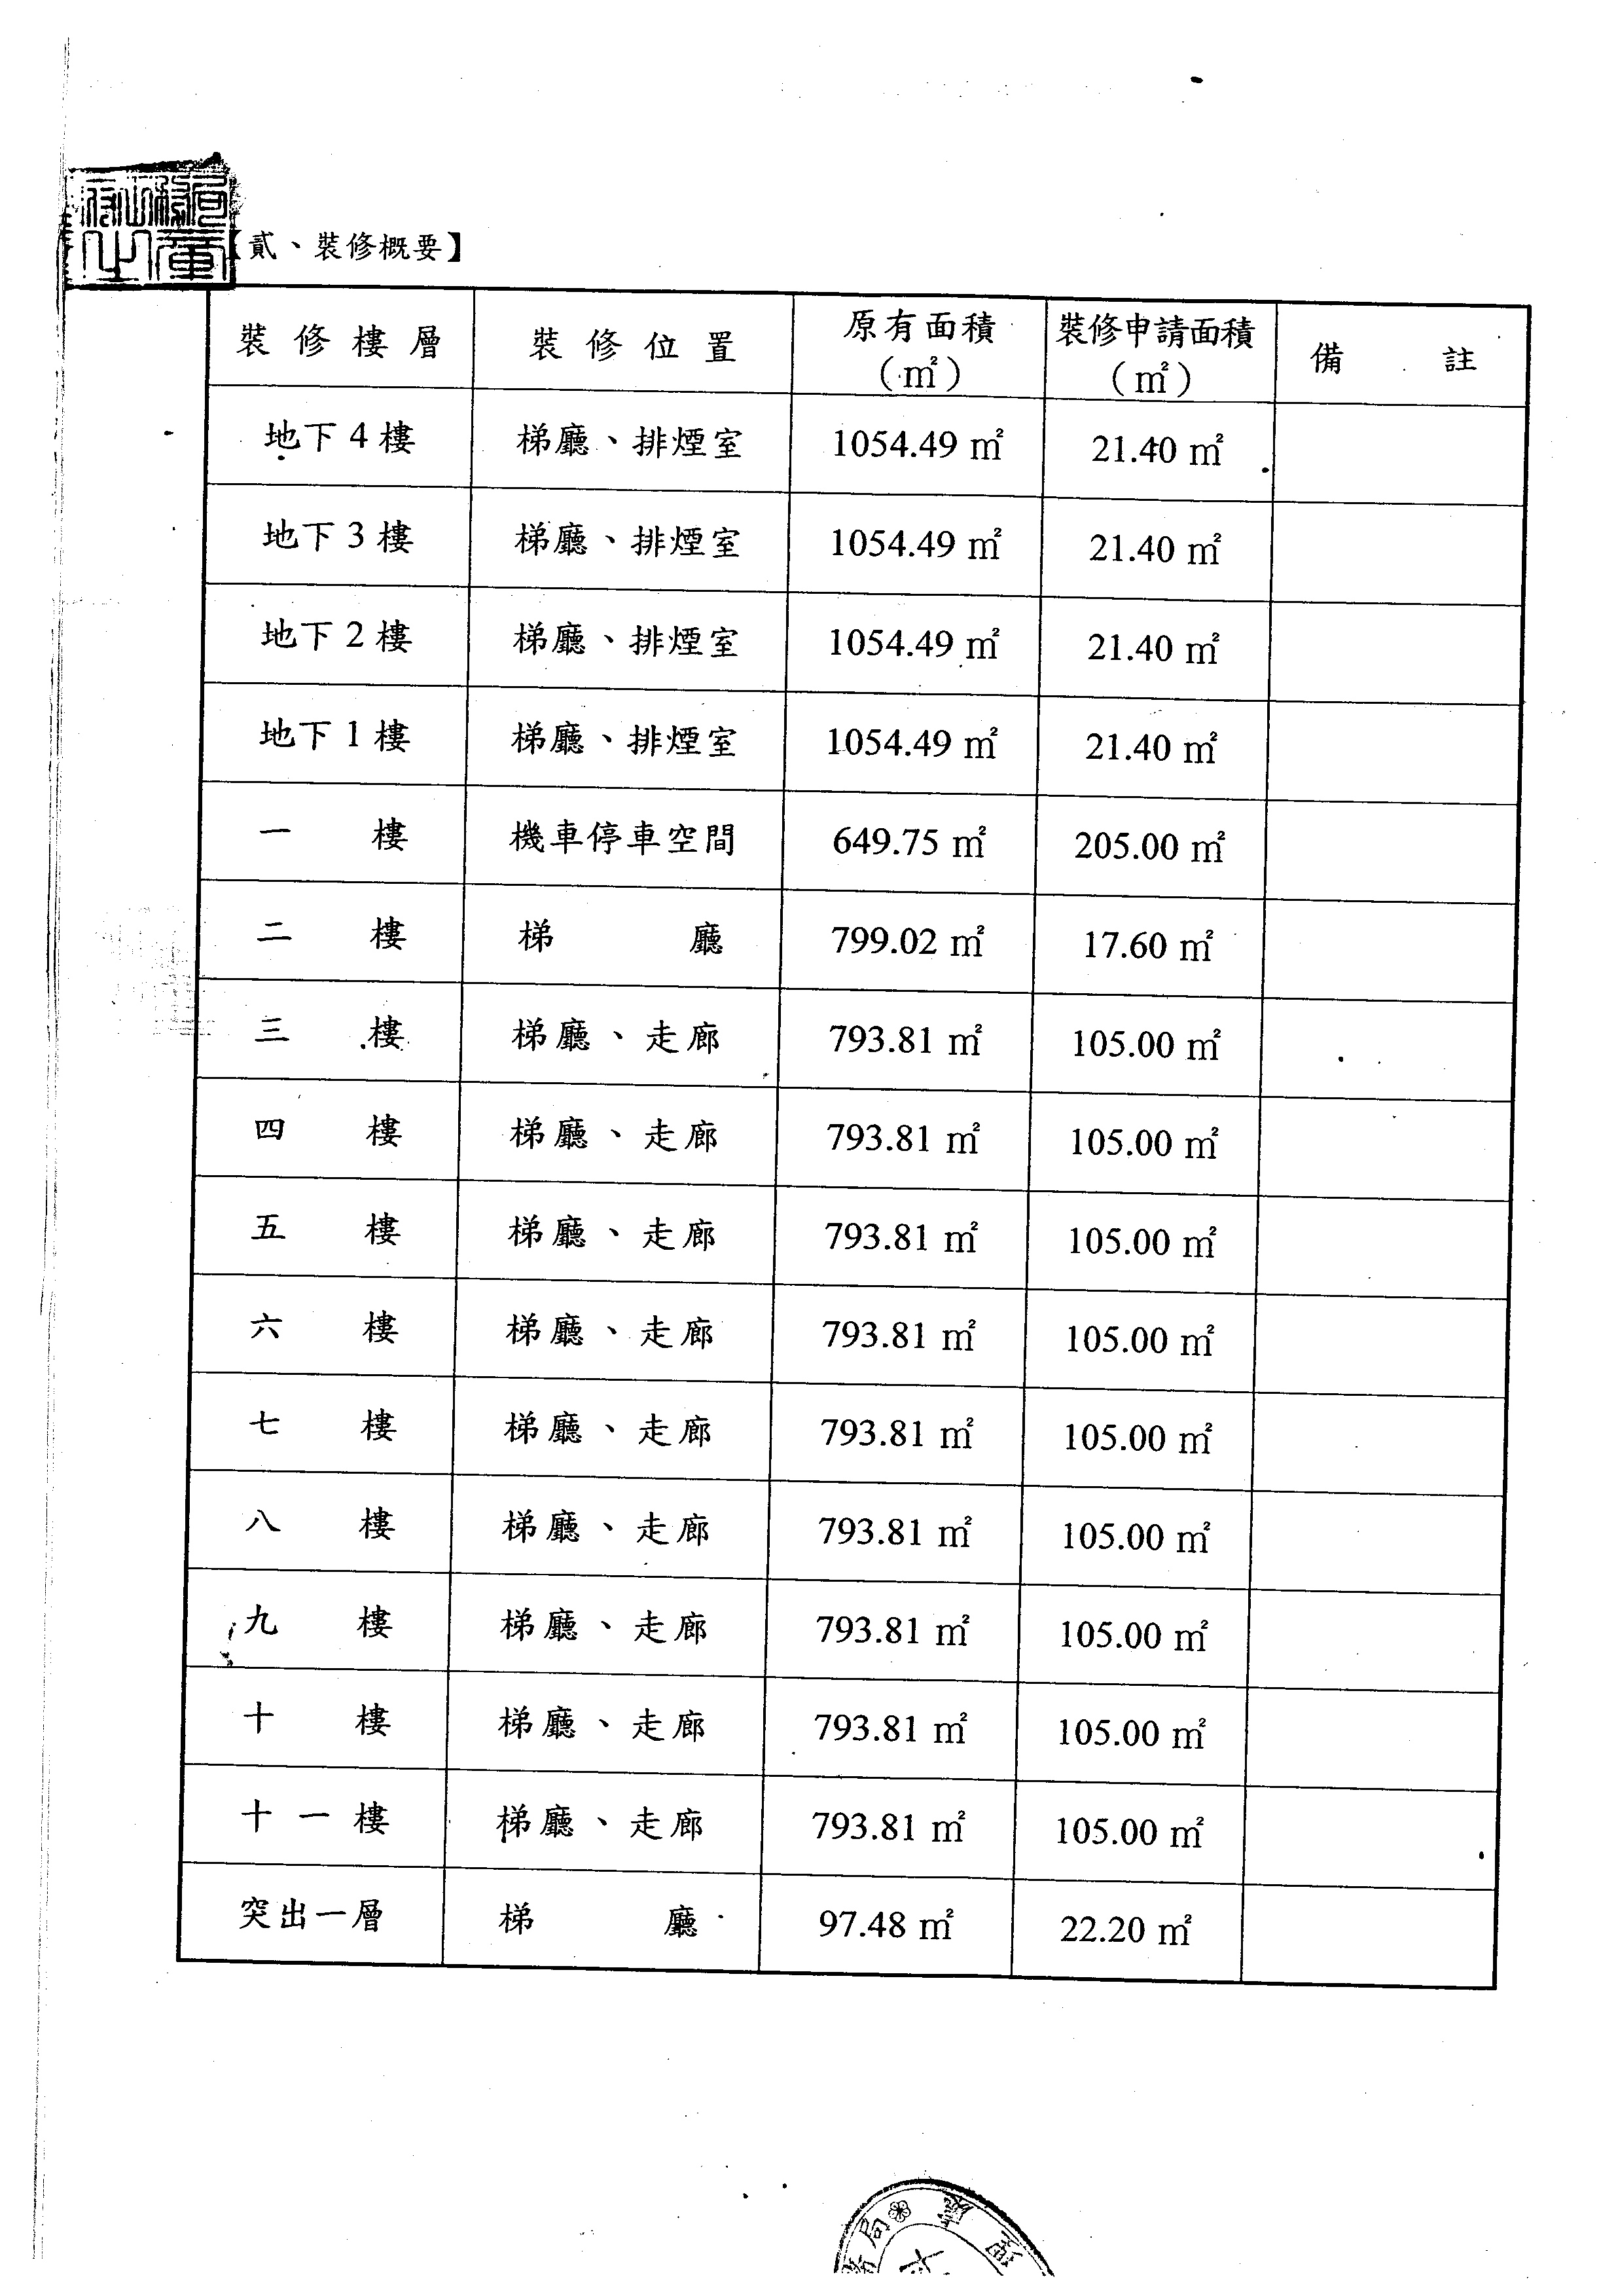 【貳、裝修概要】
裝修樓層 裝修位置 原有面積(㎡) 裝修申請面積(㎡) 備註
地下4樓 梯廳、排煙室 1054.49 ㎡ 21.40 ㎡
地下3樓 梯廳、排煙室 1054.49 ㎡ 21.40 ㎡
地下2樓 梯廳、排煙室 1054.49 ㎡ 21.40 ㎡
地下1樓 梯廳、排煙室 1054.49 ㎡ 21.40 ㎡
一樓 機車停車空間 649.75 ㎡ 205.00 ㎡
二樓 梯廳 799.02 ㎡ 17.60 ㎡
三樓 梯廳、走廊 793.81 ㎡ 105.00 ㎡
四樓 梯廳、走廊 793.81 ㎡ 105.00 ㎡
五樓 梯廳、走廊 793.81 ㎡ 105.00 ㎡
六樓 梯廳、走廊 793.81 ㎡ 105.00 ㎡
七樓 梯廳、走廊 793.81 ㎡ 105.00 ㎡
八樓 梯廳、走廊 793.81 ㎡ 105.00 ㎡
九樓 梯廳、走廊 793.81 ㎡ 105.00 ㎡
十樓 梯廳、走廊 793.81 ㎡ 105.00 ㎡
十一樓 梯廳、走廊 793.81 ㎡ 105.00 ㎡
突出一層 梯廳 97.48 ㎡ 22.20 ㎡